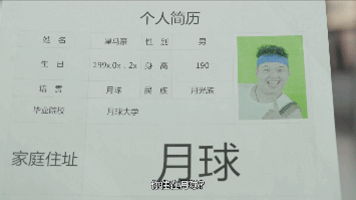 个人简历
姓 名 性 别 男
生 日 199x.0x.2x 身 高 190
籍 贯 月球 民 族 月光族
毕业院校 月球大学
家庭住址 月球
你住在月球?